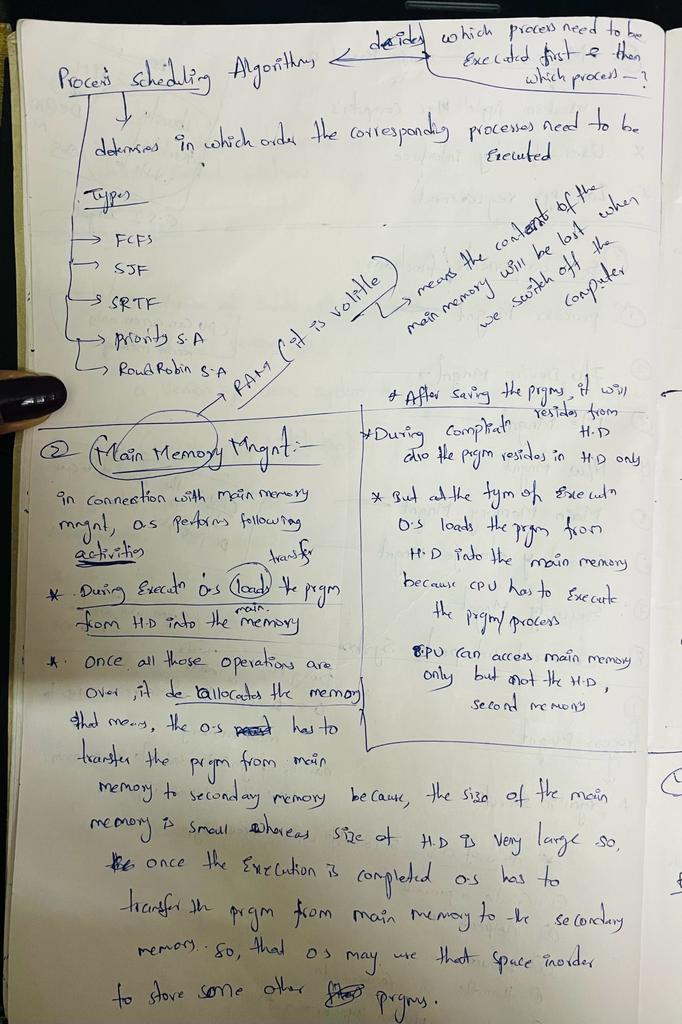 Process Scheduling Algorithms
decides which process need to be
Executed first & then
which process - ?
determines in which order the corresponding processes need to be
Executed
Types
→ FCFS
→ SJF
→ SRTF
→ priority S.A
→ Round Robin S.A
RAM (it is volitle)
means the content of the
main memory will be lost when
we switch off the
computer
② Main Memory Mngnt:-
in connection with main memory
mngnt, o.s performs following
activities
transfer
* During Executn o.s loads the prgm
from H.D into the main memory
* Once all those operations are
over, it de allocates the memory
that means, the o.s has to
transfer the prgm from main
memory to secondary memory because, the size of the main
memory is small whereas size of H.D is very large so,
once the Execution is completed o.s has to
transfer the prgm from main memory to the secondary
memory. so, that o.s may use that space inorder
to store some other prgms.
* After saving the prgms, it will
resides from
H.D
* During compliatn
also the prgm resides in H.D only
* But at the tym of Executn
o.s loads the prgm from
H.D into the main memory
because CPU has to Execute
the prgm/process
CPU can access main memory
only but not the H.D,
second memory